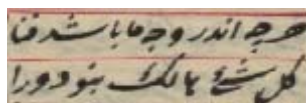 هرچه اندر وجه ما باشد فنا
کل شئ هالک نبود ورا